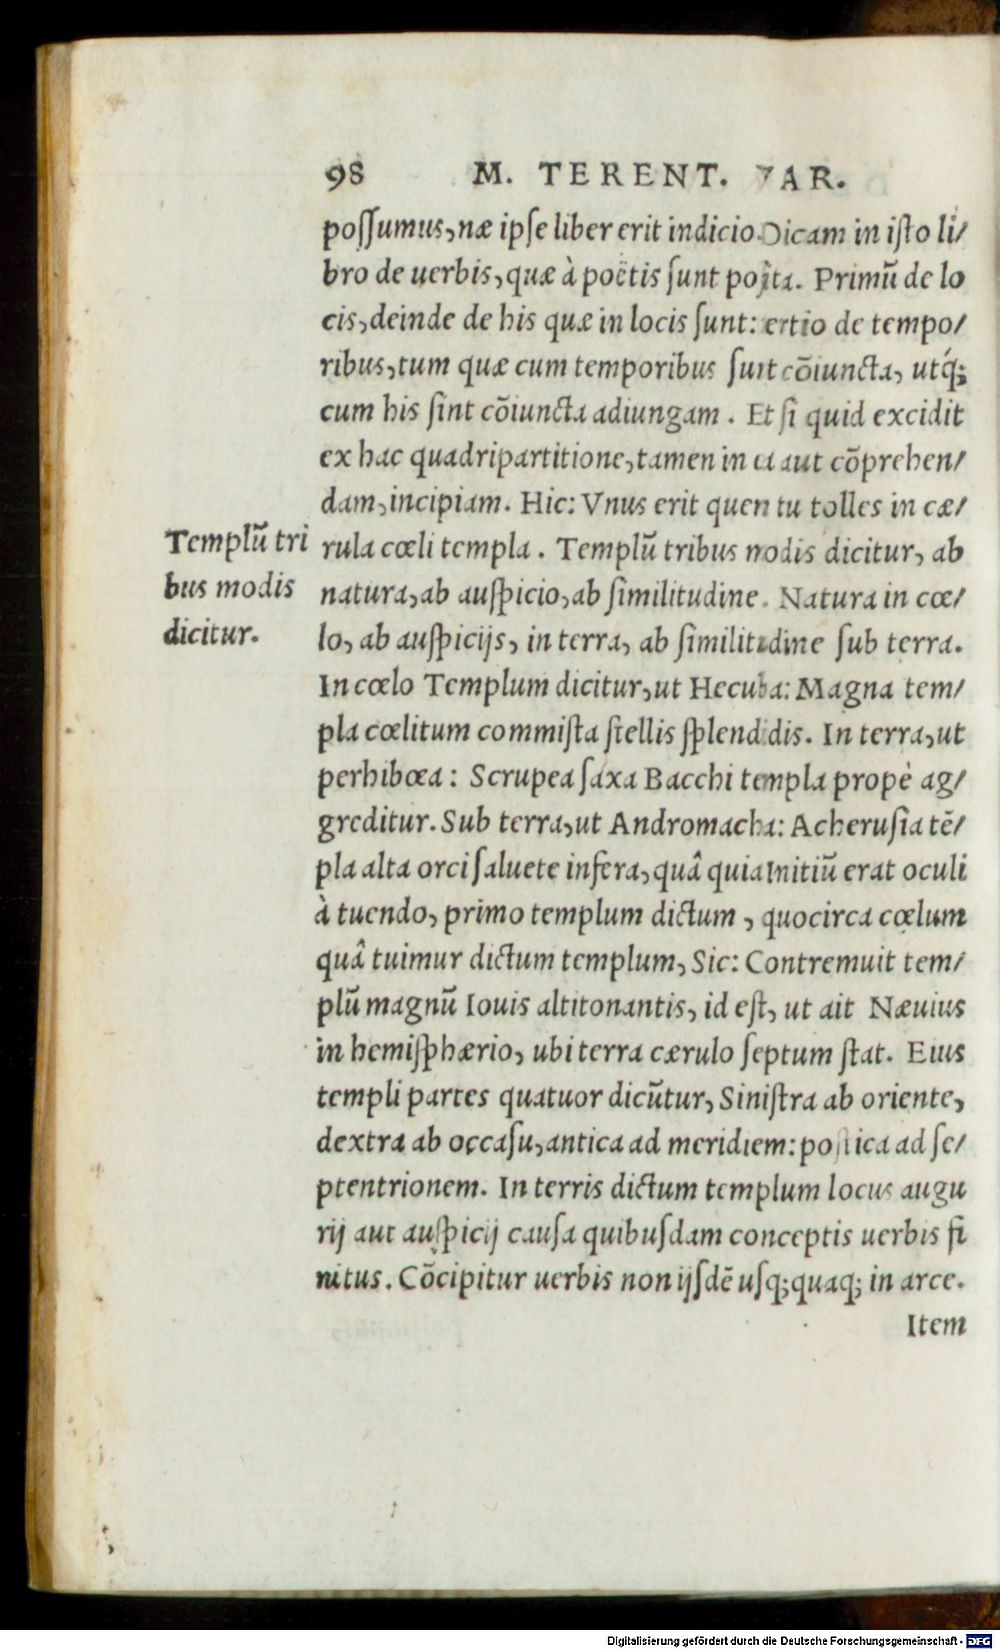 98 M. TERENT. VAR.
possumus, næ ipse liber erit indicio. Dicam in isto li/
bro de uerbis, quæ à poëtis sunt posita. Primū de lo
cis, deinde de his quæ in locis sunt: tertio de tempo/
ribus, tum quæ cum temporibus sunt cōiuncta, utq́;
cum his sint cōiuncta adiungam. Et si quid excidit
ex hac quadripartitione, tamen in ea aut cōprehen/
dam, incipiam. Hic: Vnus erit quem tu tolles in cæ/
rula cœli templa. Templū tribus modis dicitur, ab
natura, ab auspicio, ab similitudine. Natura in cœ/
lo, ab auspicijs, in terra, ab similitudine sub terra.
In cœlo Templum dicitur, ut Hecuba: Magna tem/
pla cœlitum commista stellis splendidis. In terra, ut
perhibœa: Scrupea saxa Bacchi templa propè ag/
greditur. Sub terra, ut Andromacha: Acherusia tē/
pla alta orci saluete infera, quâ quia Initiū erat oculi
à tuendo, primo templum dictum, quocirca cœlum
quâ tuimur dictum templum, Sic: Contremuit tem/
plū magnū Iouis altitonantis, id est, ut ait Næuius
in hemisphærio, ubi terra cærulo septum stat. Eius
templi partes quatuor dicūtur, Sinistra ab oriente,
dextra ab occasu, antica ad meridiem: postica ad se/
ptentrionem. In terris dictum templum locus augu
rij aut auspicij causa quibusdam conceptis uerbis fi
nitus. Cōcipitur uerbis non ijsdē usq; quaq; in arce.
Item
Templū tri
bus modis
dicitur.
Digitalisierung gefördert durch die Deutsche Forschungsgemeinschaft - DFG